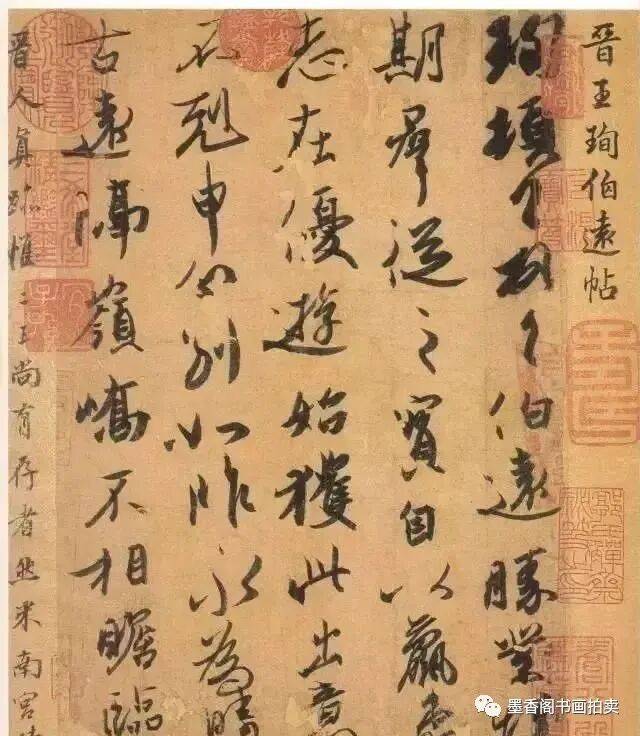 晉王珣伯遠帖
珣頓首頓首伯遠勝業
期羣從之寶自以羸
志在優遊始獲此出意
不剋申分別如昨永為
古遠隔嶺嶠不相瞻臨
晉人真跡惟二王尚有存者然米南宮
墨香阁书画拍卖